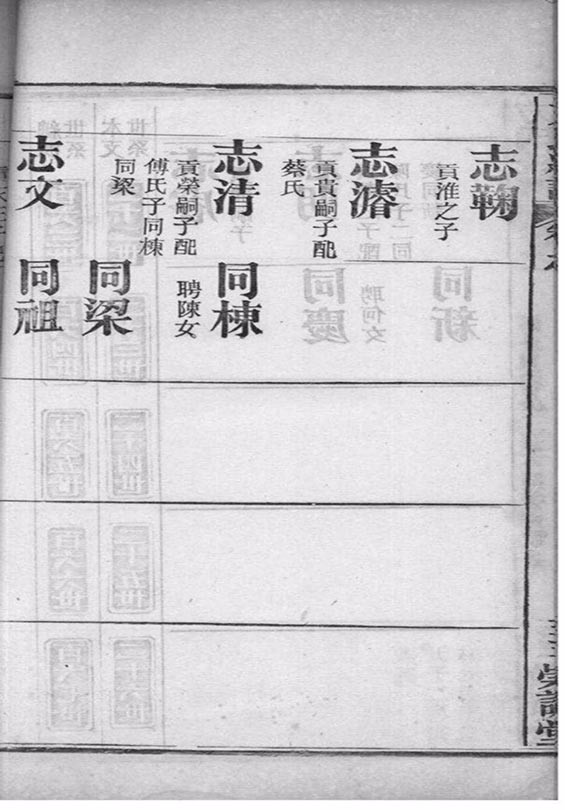 志鞠
貢淮之子
志濬
貢貴嗣子配
蔡氏
志清
貢榮嗣子配
傅氏子同棟
同梁
同棟
聘陳女
同梁
志文
同祖